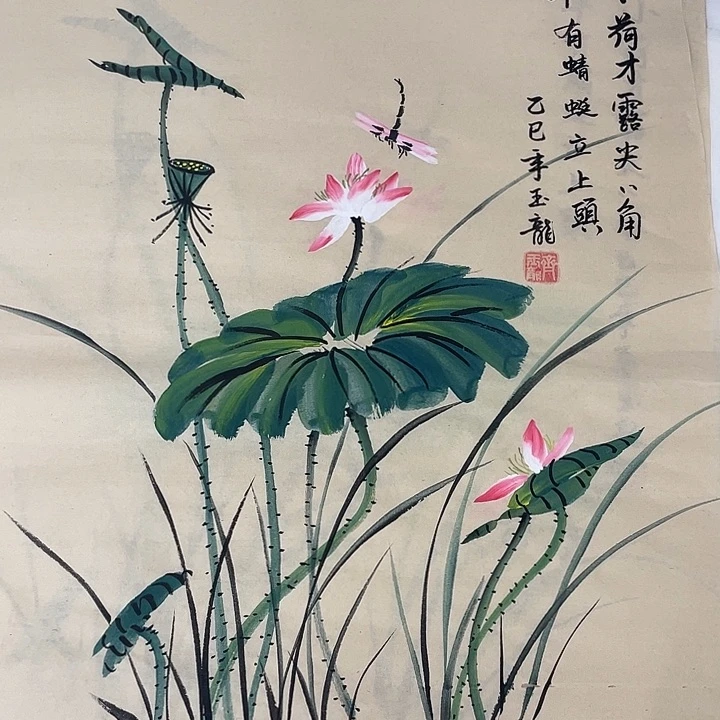 荷才露尖〻角
有蜻蜓立上頭
乙巳年玉龍